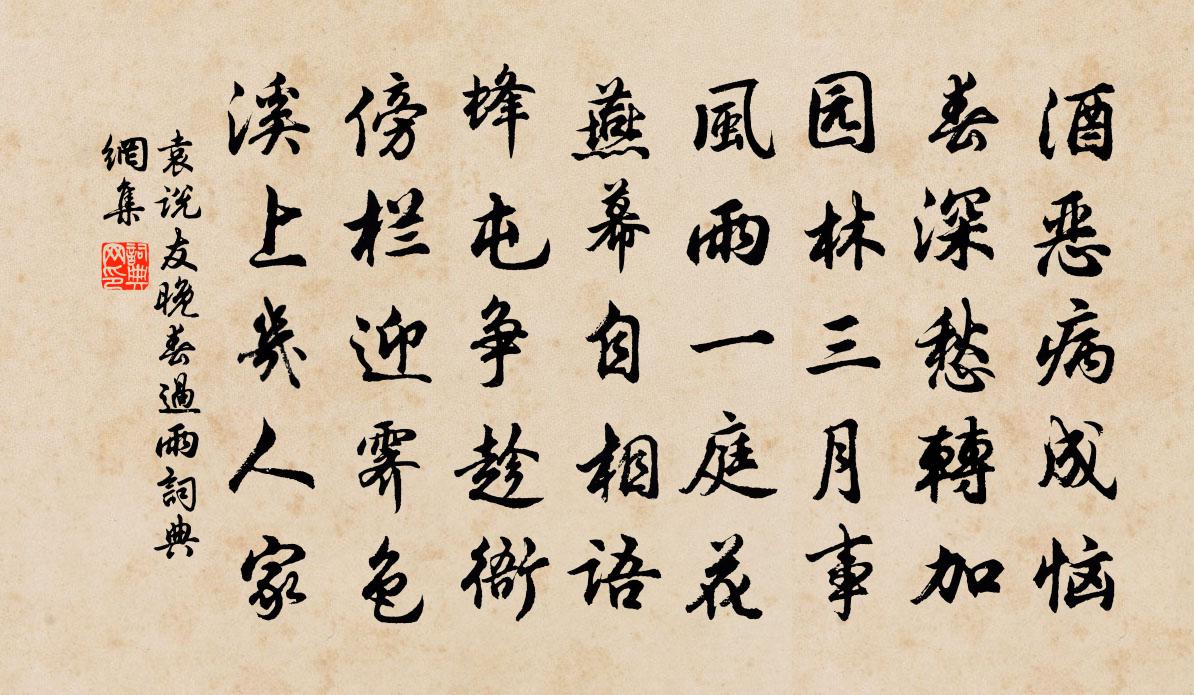 酒恶病成恼
春深愁轉加
园林三月事
風雨一庭花
燕幕自相語
蜂屯争趁衙
傍栏迎霁色
溪上幾人家
袁说友晚春過雨詞典
網集
詞典网印